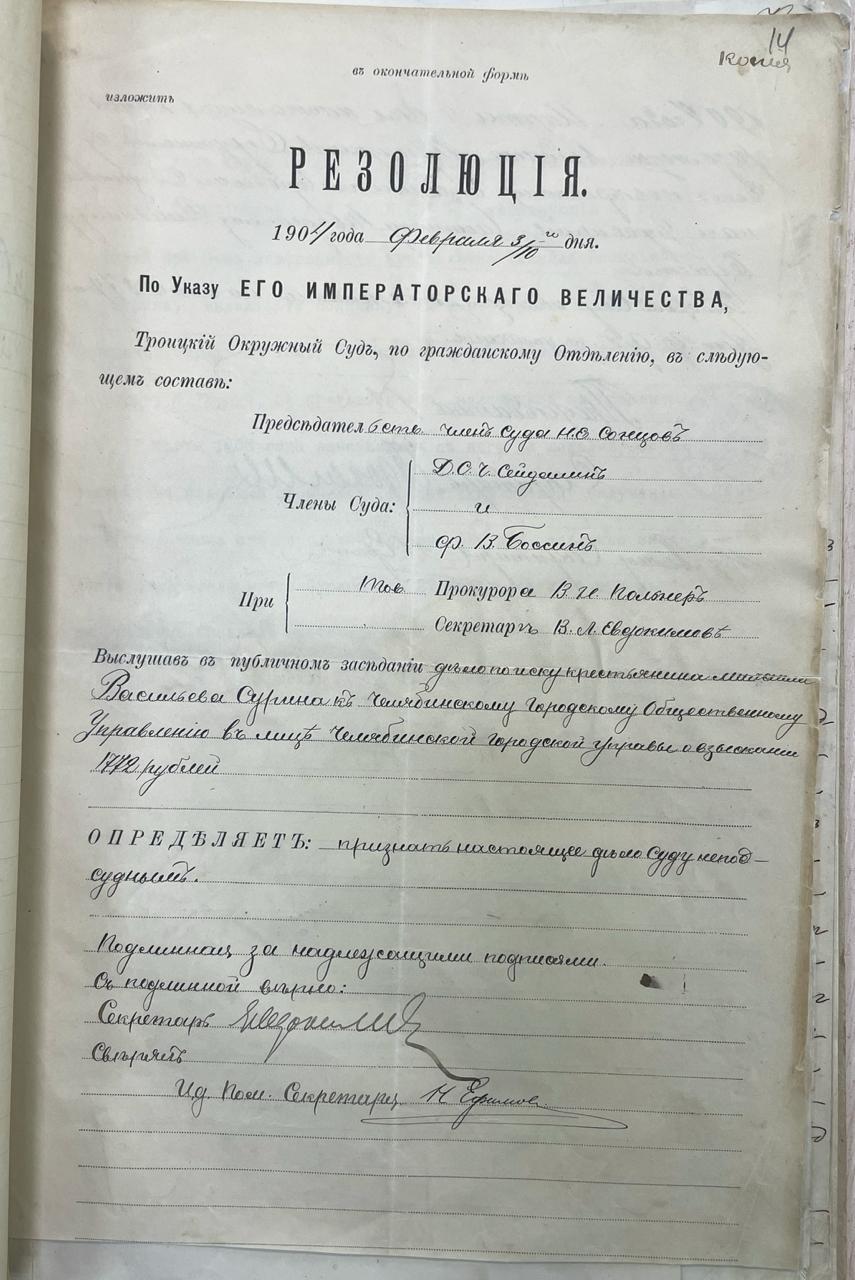 14
Копія
въ окончательной формѣ
изложить
РЕЗОЛЮЦІЯ.
1904 года Февраля 3/10 го дня.
По Указу ЕГО ИМПЕРАТОРСКАГО ВЕЛИЧЕСТВА,
Троицкій Окружный Судъ, по гражданскому Отдѣленію, въ слѣдую-
щемъ составѣ:
Предсѣдательств. Членъ Суда Н.Ѳ. Сонцовъ
Д.О.Ч. Сейдалинъ
Члены Суда: и
Ф. В. Боссинъ
При Тов. Прокурора В. И. Польнеръ
Секретарѣ В. Л. Евдокимовѣ
Выслушавъ въ публичномъ засѣданіи дѣло по иску крестьянина
Васильева Сурина къ Челябинскому Городскому Общественному
Управленію въ лицѣ Челябинской Городской Управы о взысканіи
1772 рублей
ОПРЕДѢЛЯЕТЪ: признать настоящее дѣло Суду непод-
суднымъ.
Подлинная за надлежащими подписями.
Съ подлинной вѣрно:
Секретарь Евдокимовъ
Свѣрялъ
И.д. Пом. Секретаря Н Ефимов